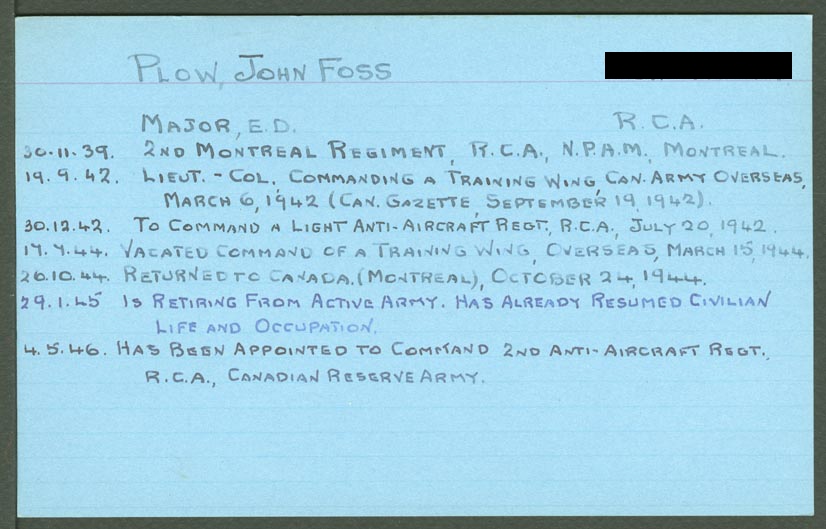 PLOW, JOHN FOSS
MAJOR, E.D. R.C.A.
30.11.39. 2ND MONTREAL REGIMENT, R.C.A., N.P.A.M., MONTREAL.
19.9.42. LIEUT.-COL. COMMANDING A TRAINING WING, CAN. ARMY OVERSEAS,
MARCH 6, 1942 (CAN. GAZETTE, SEPTEMBER 19, 1942).
30.12.42. TO COMMAND A LIGHT ANTI-AIRCRAFT REGT., R.C.A., JULY 20, 1942.
VACATED COMMAND OF A TRAINING WING, OVERSEAS, MARCH 15, 1944.
26.10.44. RETURNED TO CANADA. (MONTREAL), OCTOBER 24, 1944.
29.1.45 IS RETIRING FROM ACTIVE ARMY. HAS ALREADY RESUMED CIVILIAN
LIFE AND OCCUPATION.
4.5.46. HAS BEEN APPOINTED TO COMMAND 2ND ANTI-AIRCRAFT REGT.,
R.C.A., CANADIAN RESERVE ARMY.